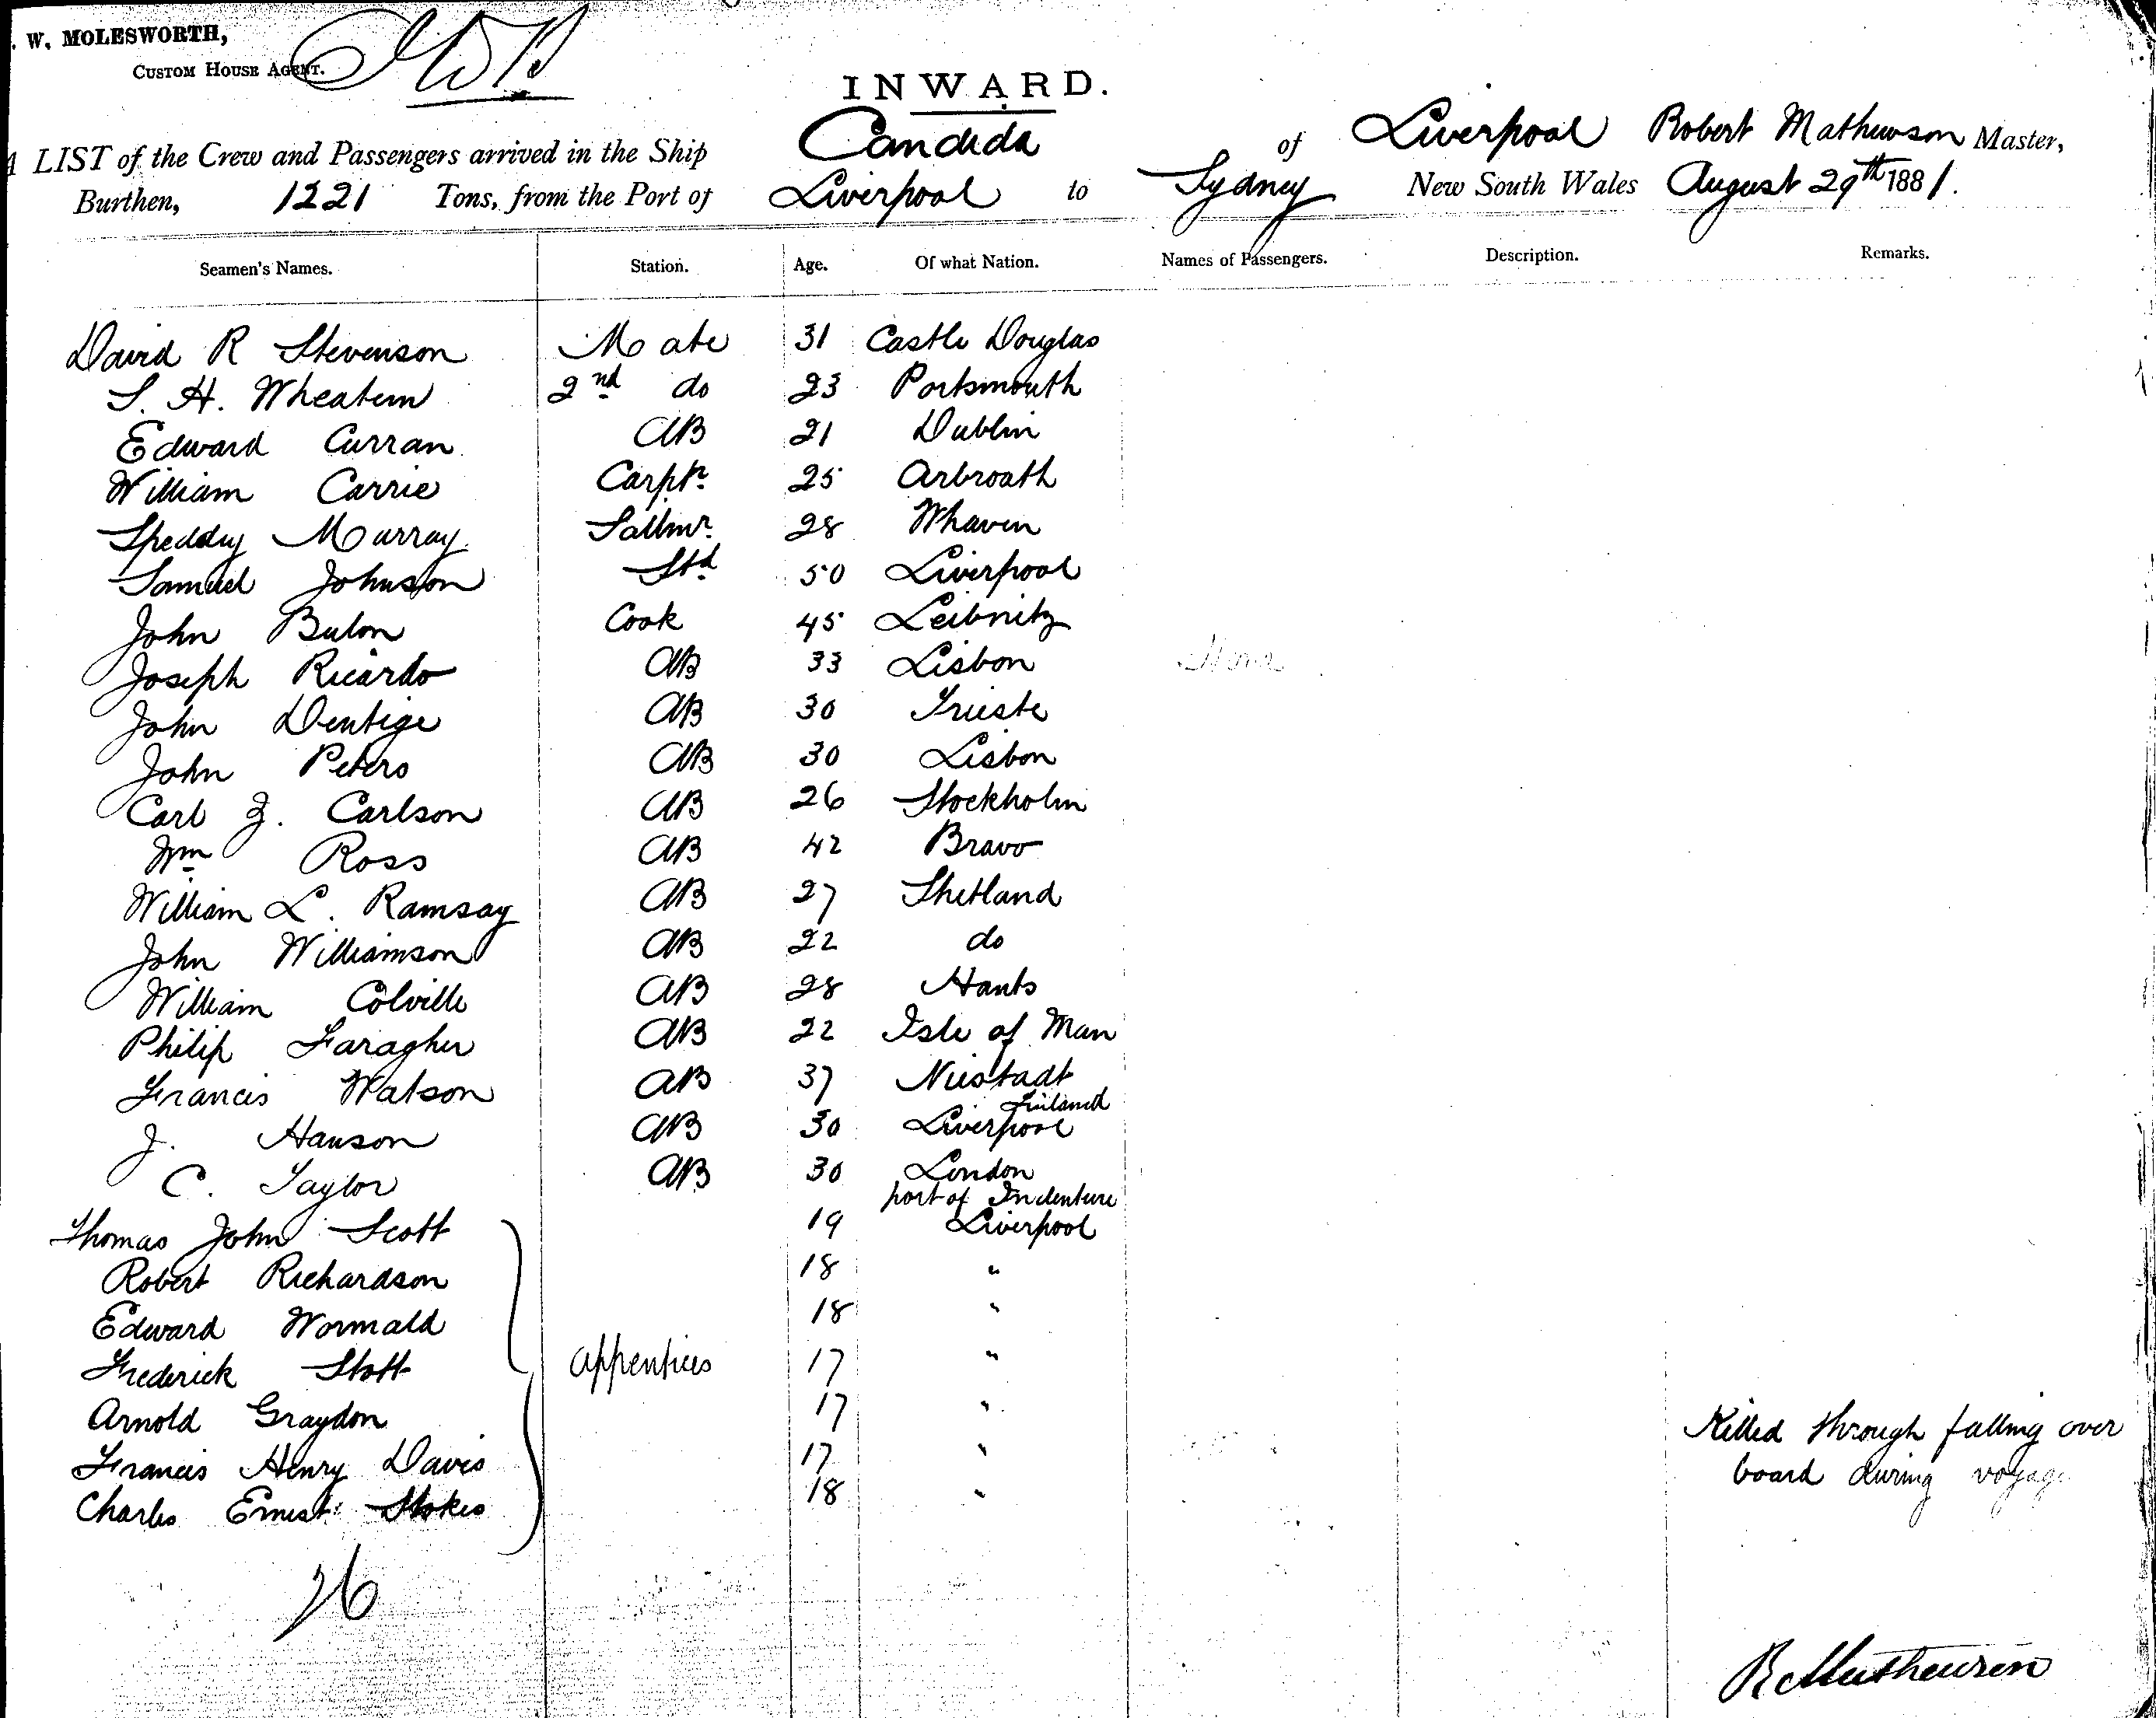 . W. MOLESWORTH,
CUSTOM HOUSE AGENT.
INWARD.
A LIST of the Crew and Passengers arrived in the Ship Candida of Liverpool Robert Mathewson Master,
Burthen, 1221 Tons, from the Port of Liverpool to Sydney New South Wales August 29th 1881.
Seamen's Names. Station. Age. Of what Nation. Names of Passengers. Description. Remarks.
David R Stevenson Mate 31 Castle Douglas
S. H. Wheatem 2nd do 23 Portsmouth
Edward Curran AB 21 Dublin
William Carrie Carptr. 25 Arbroath
Speddy Murray Sailmr. 28 Whaven
Samuel Johnson Std 50 Liverpool
John Bulon Cook 45 Leibnitz
Joseph Ricardo AB 33 Lisbon None
John Dentige AB 30 Trieste
John Peters AB 30 Lisbon
Carl J. Carlson AB 26 Stockholm
Wm Ross AB 42 Bravo
William L. Ramsay AB 27 Shetland
John Williamson AB 22 do
William Colville AB 28 Hants
Philip Faragher AB 22 Isle of Man
Francis Watson AB 37 Niestadt
Finland
J. Hanson AB 30 Liverpool
C. Taylor AB 30 London
port of Indenture
Thomas John Scott 19 Liverpool
Robert Richardson 18 "
Edward Wormald 18 "
Frederick Stott Apprentices 17 "
Arnold Graydon 17 " Killed through falling over
Francis Henry Davis 17 " board during voyage
Charles Ernest Stokes 18 "
26
R Mathewson